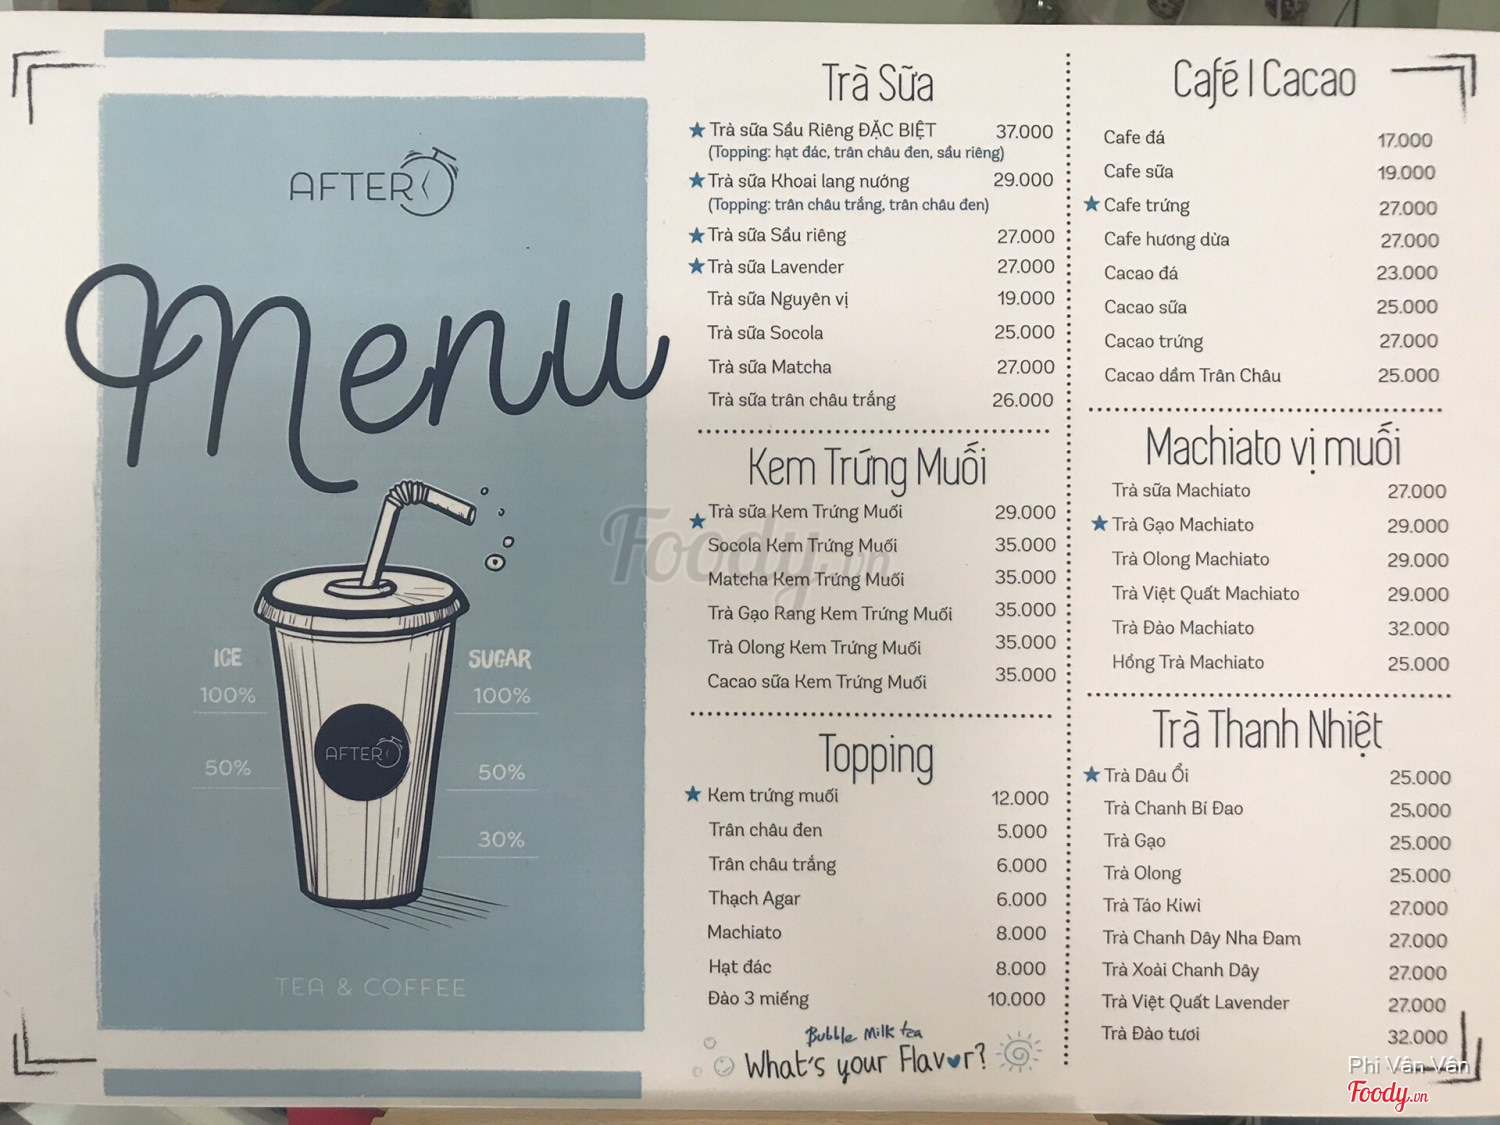 AFTER
Menu
ICE
100%
50%
SUGAR
100%
50%
30%
AFTER
TEA & COFFEE
Trà Sữa
★ Trà sữa Sầu Riêng ĐẶC BIỆT 37.000
(Topping: hạt đác, trân châu đen, sầu riêng)
★ Trà sữa Khoai lang nướng 29.000
(Topping: trân châu trắng, trân châu đen)
★ Trà sữa Sầu riêng 27.000
★ Trà sữa Lavender 27.000
Trà sữa Nguyên vị 19.000
Trà sữa Socola 25.000
Trà sữa Matcha 27.000
Trà sữa trân châu trắng 26.000
Kem Trứng Muối
★ Trà sữa Kem Trứng Muối 29.000
Socola Kem Trứng Muối 35.000
Matcha Kem Trứng Muối 35.000
Trà Gạo Rang Kem Trứng Muối 35.000
Trà Olong Kem Trứng Muối 35.000
Cacao sữa Kem Trứng Muối 35.000
Topping
★ Kem trứng muối 12.000
Trân châu đen 5.000
Trân châu trắng 6.000
Thạch Agar 6.000
Machiato 8.000
Hạt đác 8.000
Đào 3 miếng 10.000
Bubble Milk tea
What's your Flavor?
Café | Cacao
Cafe đá 17.000
Cafe sữa 19.000
★ Cafe trứng 27.000
Cafe hương dừa 27.000
Cacao đá 23.000
Cacao sữa 25.000
Cacao trứng 27.000
Cacao dầm Trân Châu 25.000
Machiato vị muối
Trà sữa Machiato 27.000
★ Trà Gạo Machiato 29.000
Trà Olong Machiato 29.000
Trà Việt Quất Machiato 29.000
Trà Đào Machiato 32.000
Hồng Trà Machiato 25.000
Trà Thanh Nhiệt
★ Trà Dâu Ổi 25.000
Trà Chanh Bí Đao 25.000
Trà Gạo 25.000
Trà Olong 25.000
Trà Táo Kiwi 27.000
Trà Chanh Dây Nha Đam 27.000
Trà Xoài Chanh Dây 27.000
Trà Việt Quất Lavender 27.000
Trà Đào tươi 32.000
Foody.vn
Phi Vân Vân
Foody.vn